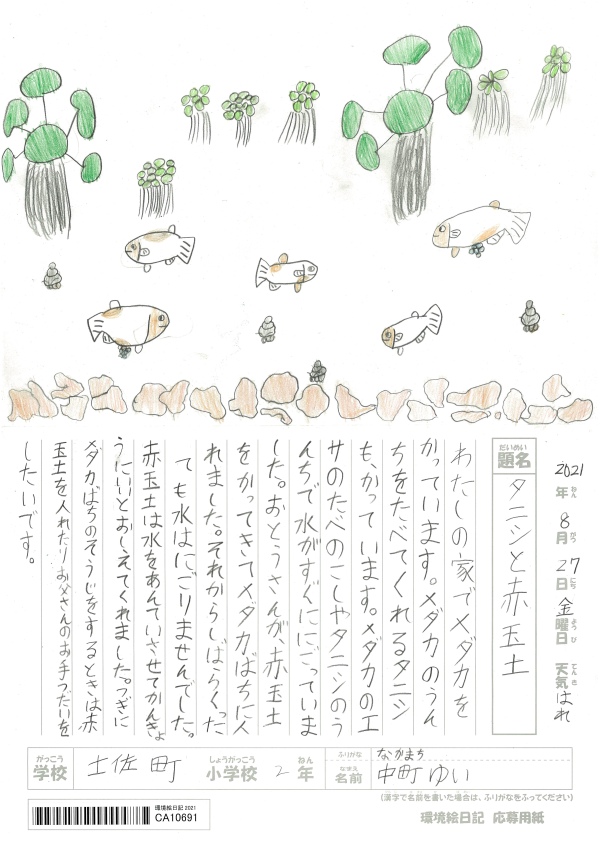 2021年ねん8月がつ27日にち金曜日ようび 天気てんきはれ
題名だいめい タニシと赤玉土
わたしの家でメダカを
かっています。メダカのうん
ちをたべてくれるタニシ
も、かっています。メダカのエ
サのたべのこしやタニシのう
んちで水がすぐににごっていま
した。おとうさんが、赤玉土
をかってきてメダカばちに入
れました。それからしばらくた
ても水はにごりませんでした。
赤玉土は水をあんていさせてかんきょ
うにいいとおしえてくれました。つぎに
メダカばちのそうじをするときは赤
玉土を入れたりお父さんのお手つだいを
したいです。
がっこう
学校 土佐町 小学校しょうがっこう 2年ねん
ふりがな なかまち
名前なまえ 中町ゆい
(漢字で名前を書いた場合は、ふりがなをふってください)
環境絵日記 応募用紙
環境絵日記 2021
CA10691